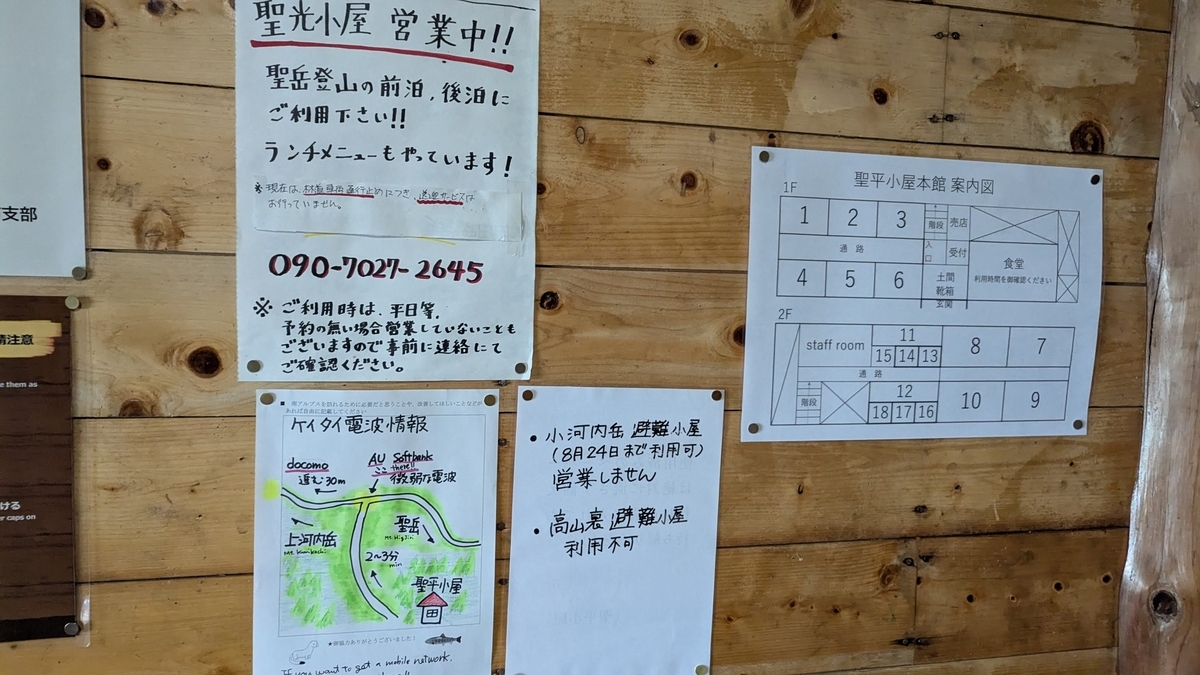 支部
情注意
e them as
ける
r caps on
聖光小屋 営業中!!
聖岳登山の前泊,後泊に
ご利用下さい!!
ランチメニューもやっています!
※現在は、林道車両通行止めにつき、送迎サービスは
お行っていません。
090-7027-2645
※ ご利用時は、平日等、
予約の無い場合営業していないことも
ございますので事前に連絡にて
ご確認ください。
■ 南アルプスを訪れるために必要だと思うことや、改善してほしいことなどが
あれば自由に記載してください
ケイタイ電波情報
docomo
進む30m
AU Softbank
ここ there!!
微弱な電波
上河内岳
聖岳
2~3分
min
聖平小屋
★御協力ありがとうございました!
If you want to get a mobile network,
• 小河内岳 避難小屋
(8月24日まで利用可)
営業しません
• 高山裏 避難小屋
利用不可
聖平小屋本館 案内図
1F
1 2 3 階段 売店
通路 入口 受付
食堂
利用時間を御確認ください
4 5 6 土間
靴箱
玄関
2F
staff room 11 8 7
15 14 13
通路
階段 12 10 9
18 17 16